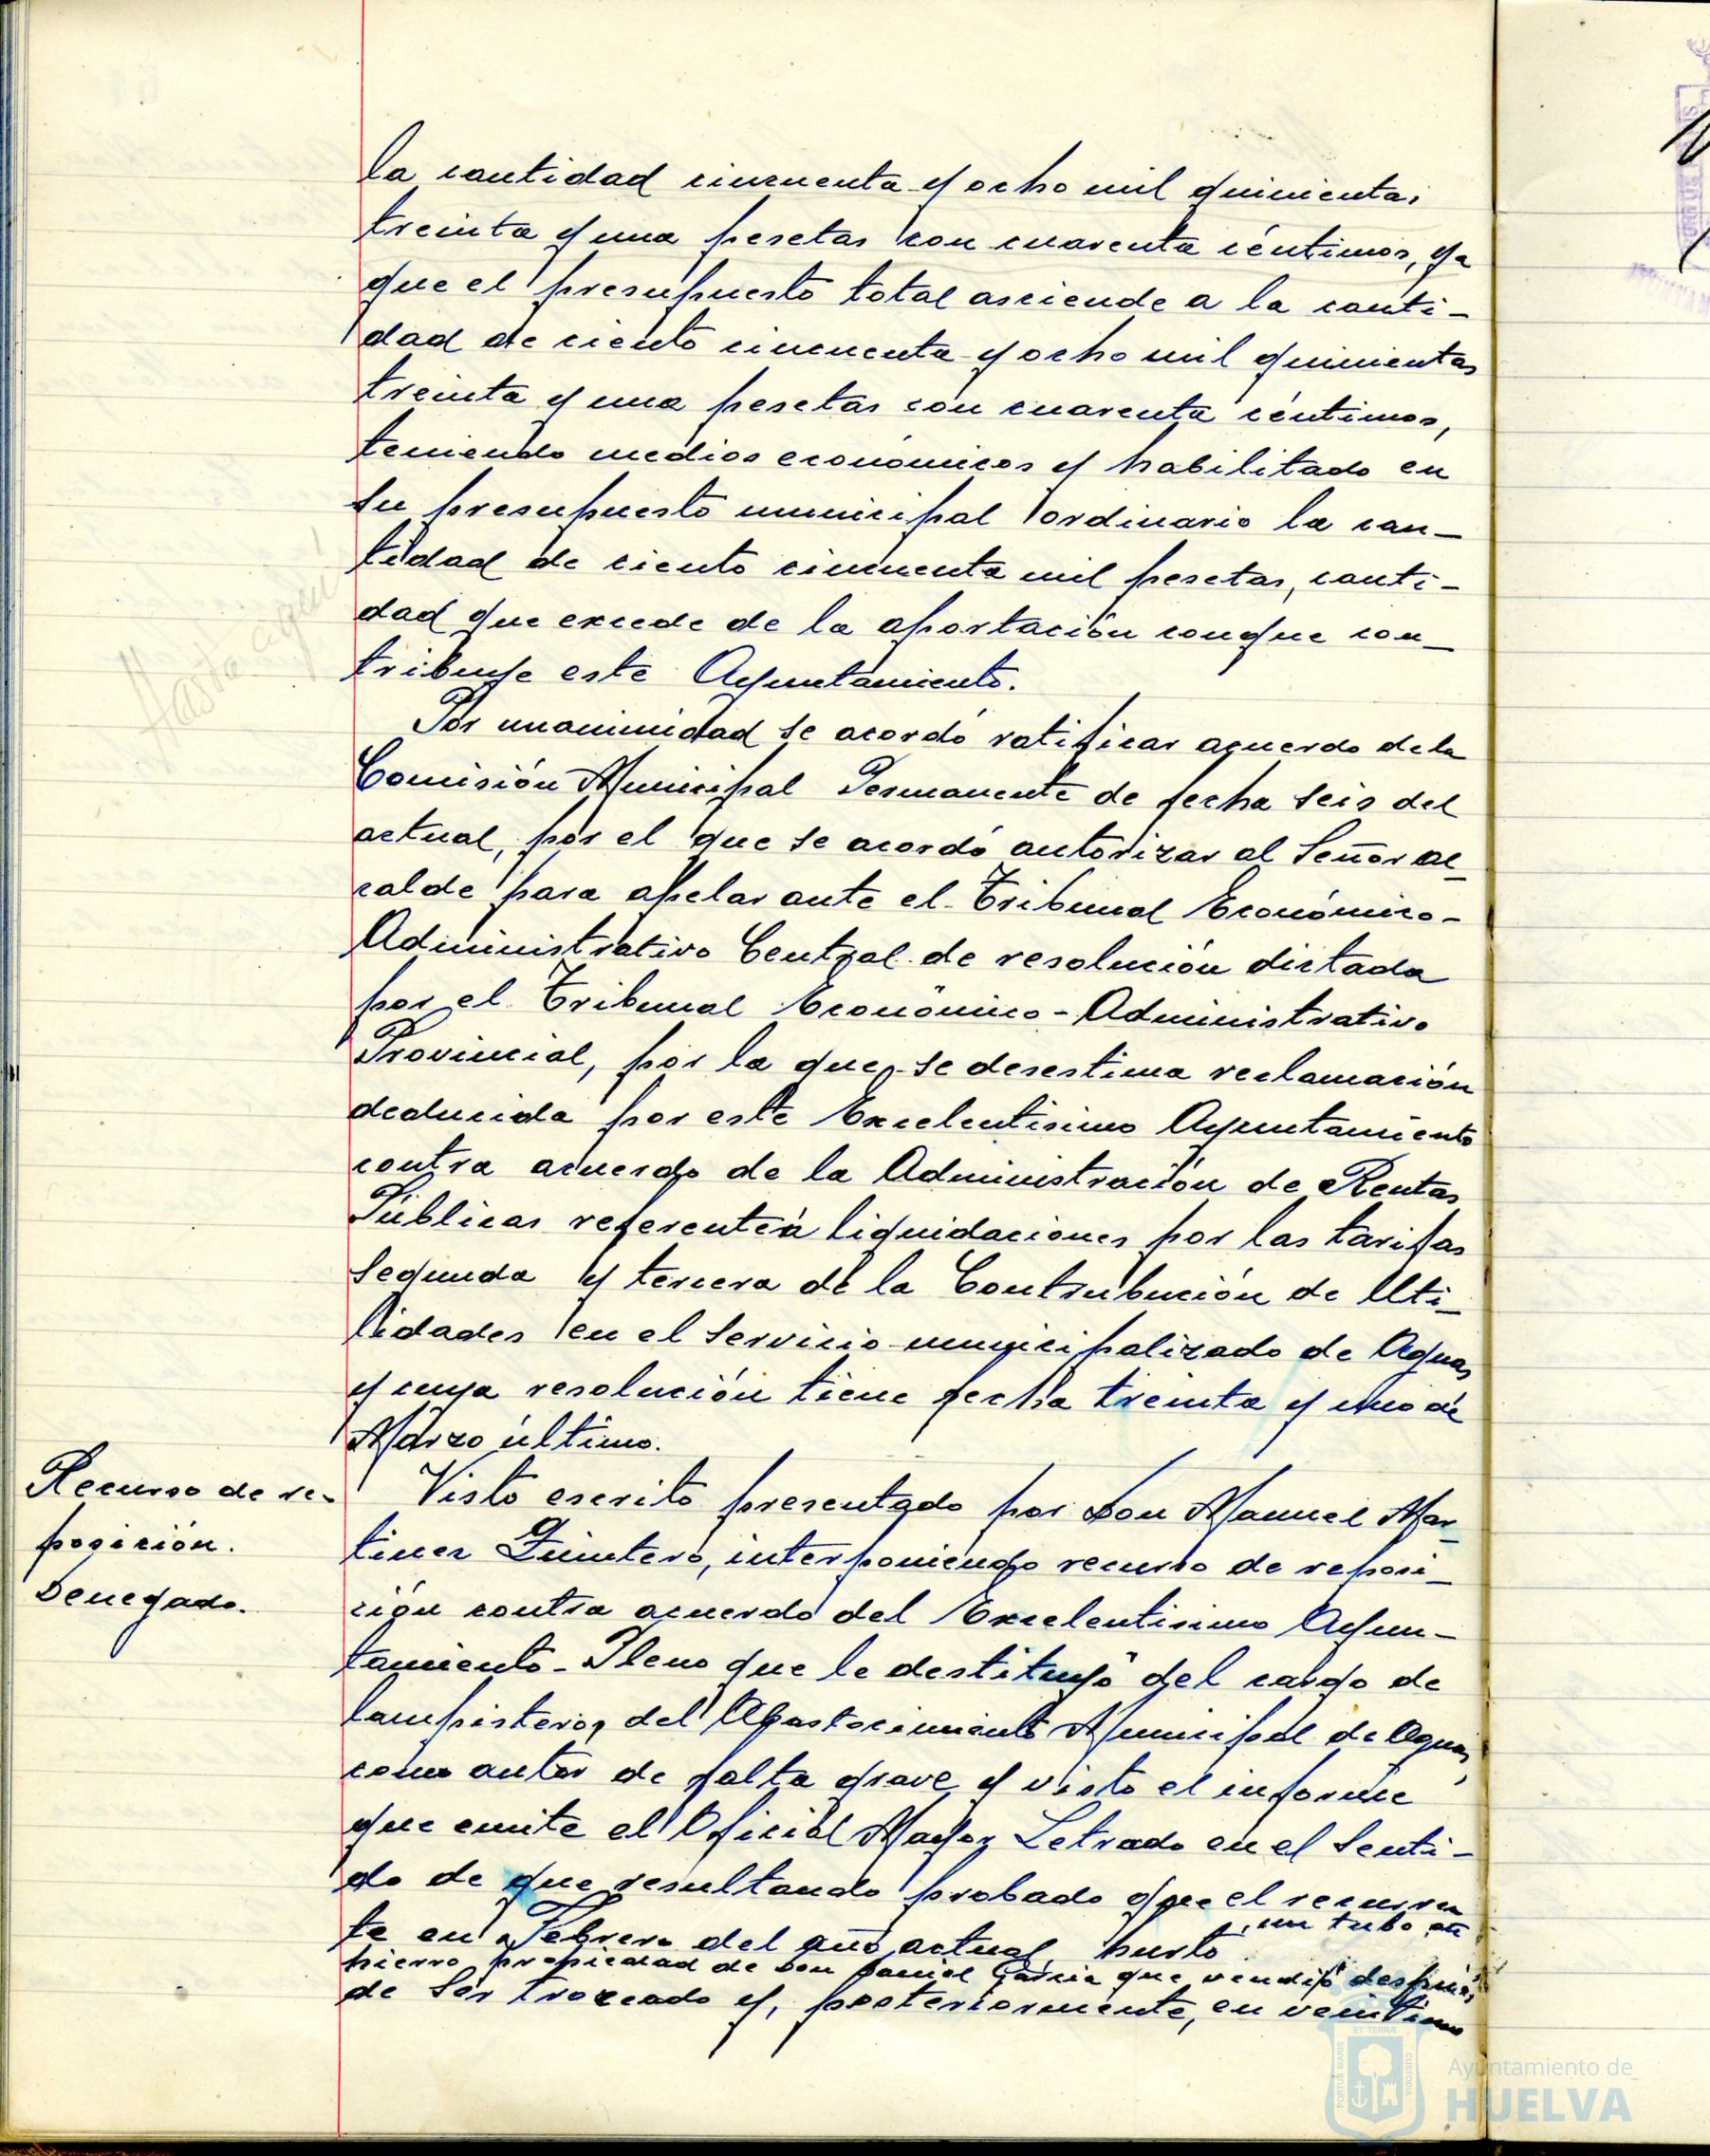 la cantidad cincuenta y ocho mil quinientas
treinta y una pesetas con cuarenta céntimos, ya
que el presupuesto total asciende a la canti-
dad de ciento cincuenta y ocho mil quinientas
treinta y una pesetas con cuarenta céntimos,
teniendo medios económicos y habilitado en
su presupuesto municipal ordinario la can-
tidad de ciento cincuenta mil pesetas, canti-
dad que excede de la aportación conque con-
tribuye este Ayuntamiento.
Hasta aquí
Por unanimidad se acordó ratificar acuerdo de la
Comisión Municipal Permanente de fecha seis del
actual, por el que se acordó autorizar al Señor Al-
calde para apelar ante el Tribunal Económico-
Administrativo Central de resolución dictada
por el Tribunal Económico-Administrativo
Provincial, por la que se desestima reclamación
deducida por este Excelentísimo Ayuntamiento
contra acuerdo de la Administración de Rentas
Públicas referente a liquidaciones por las tarifas
segunda y tercera de la Contribución de Uti-
lidades en el servicio municipalizado de Aguas
y cuya resolución tiene fecha treinta y uno de
Marzo último.
Recurso de re-
posición.
Denegado.
Visto escrito presentado por Don Manuel Mar-
tinez Quintero, interponiendo recurso de reposi-
ción contra acuerdo del Excelentisimo Ayun-
tamiento-Pleno que le destituyó del cargo de
lampistero, del Abastecimiento Municipal de Aguas,
como autor de falta grave y visto el informe
que emite el Oficial Mayor Letrado en el senti-
do de que resultando probado que el recurren
te en Febrero del año actual hurtó un tubo de
hierro propiedad de Don Daniel Garcia que vendió después
de ser troceado y, posteriormente, en veintiuno
PORTUS MARIS ET TERRAE CUSTODIA
Ayuntamiento de
HUELVA